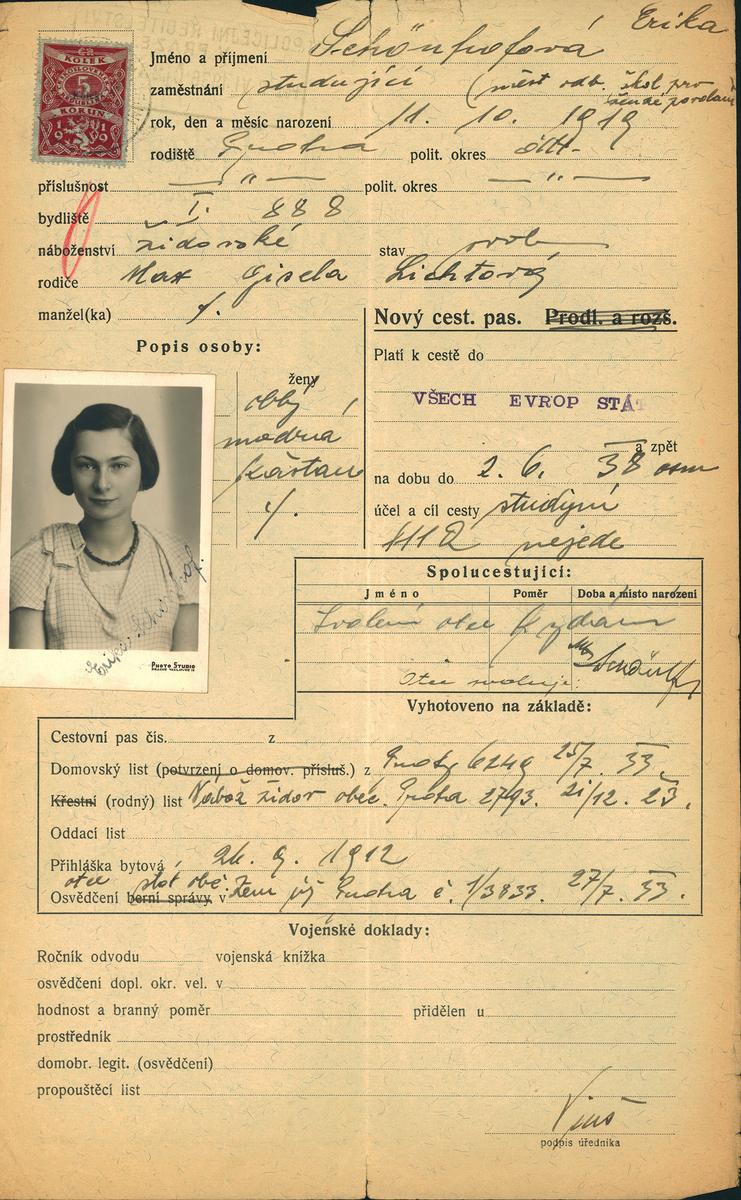 ČS. KOLEK
ČESKOSLOVENSKÁ REPUBLIKA
5
KORUN
1919
POLICEJNÍ ŘEDITELSTVÍ
Erika
Jméno a příjmení Schönhofová
zaměstnání studující (měst. odb. škol pro
ženské povolání)
rok, den a měsíc narození 11. 10. 1919
rodiště Praha polit. okres dtt.
příslušnost — " — polit. okres — " —
bydliště I. 888
náboženství židovské stav svob
rodiče Max Gisela Lichtová
manžel(ka) /.
Nový cest. pas. Prodl. a rozš.
Popis osoby:
Platí k cestě do
ženy
VŠECH EVROP STÁT
obly
modrá
kaštan
/.
a zpět
na dobu do 2. 6. 38 osm
účel a cíl cesty studijní
nejede
Spolucestující:
Jméno Poměr Doba a místo narození
Svolení otce
Otec svoluje:
Erika Schönhof.
PHOTO STUDIO
Vyhotoveno na základě:
Cestovní pas čís. z
Domovský list (potvrzení o domov. přísluš.) z Prahy 6249 25/7. 33
Křestní (rodný) list Nábož židov obec. Praha 2793. 21/12. 23.
Oddací list
Přihláška bytová 26. 9. 1912
otce stát obč.
Osvědčení berní správy v Zem úř Praha č. 1/3833. 27/7. 33.
Vojenské doklady:
Ročník odvodu vojenská knížka
osvědčení dopl. okr. vel. v
hodnost a branný poměr přidělen u
prostředník
domobr. legit. (osvědčení)
propouštěcí list
podpis úředníka